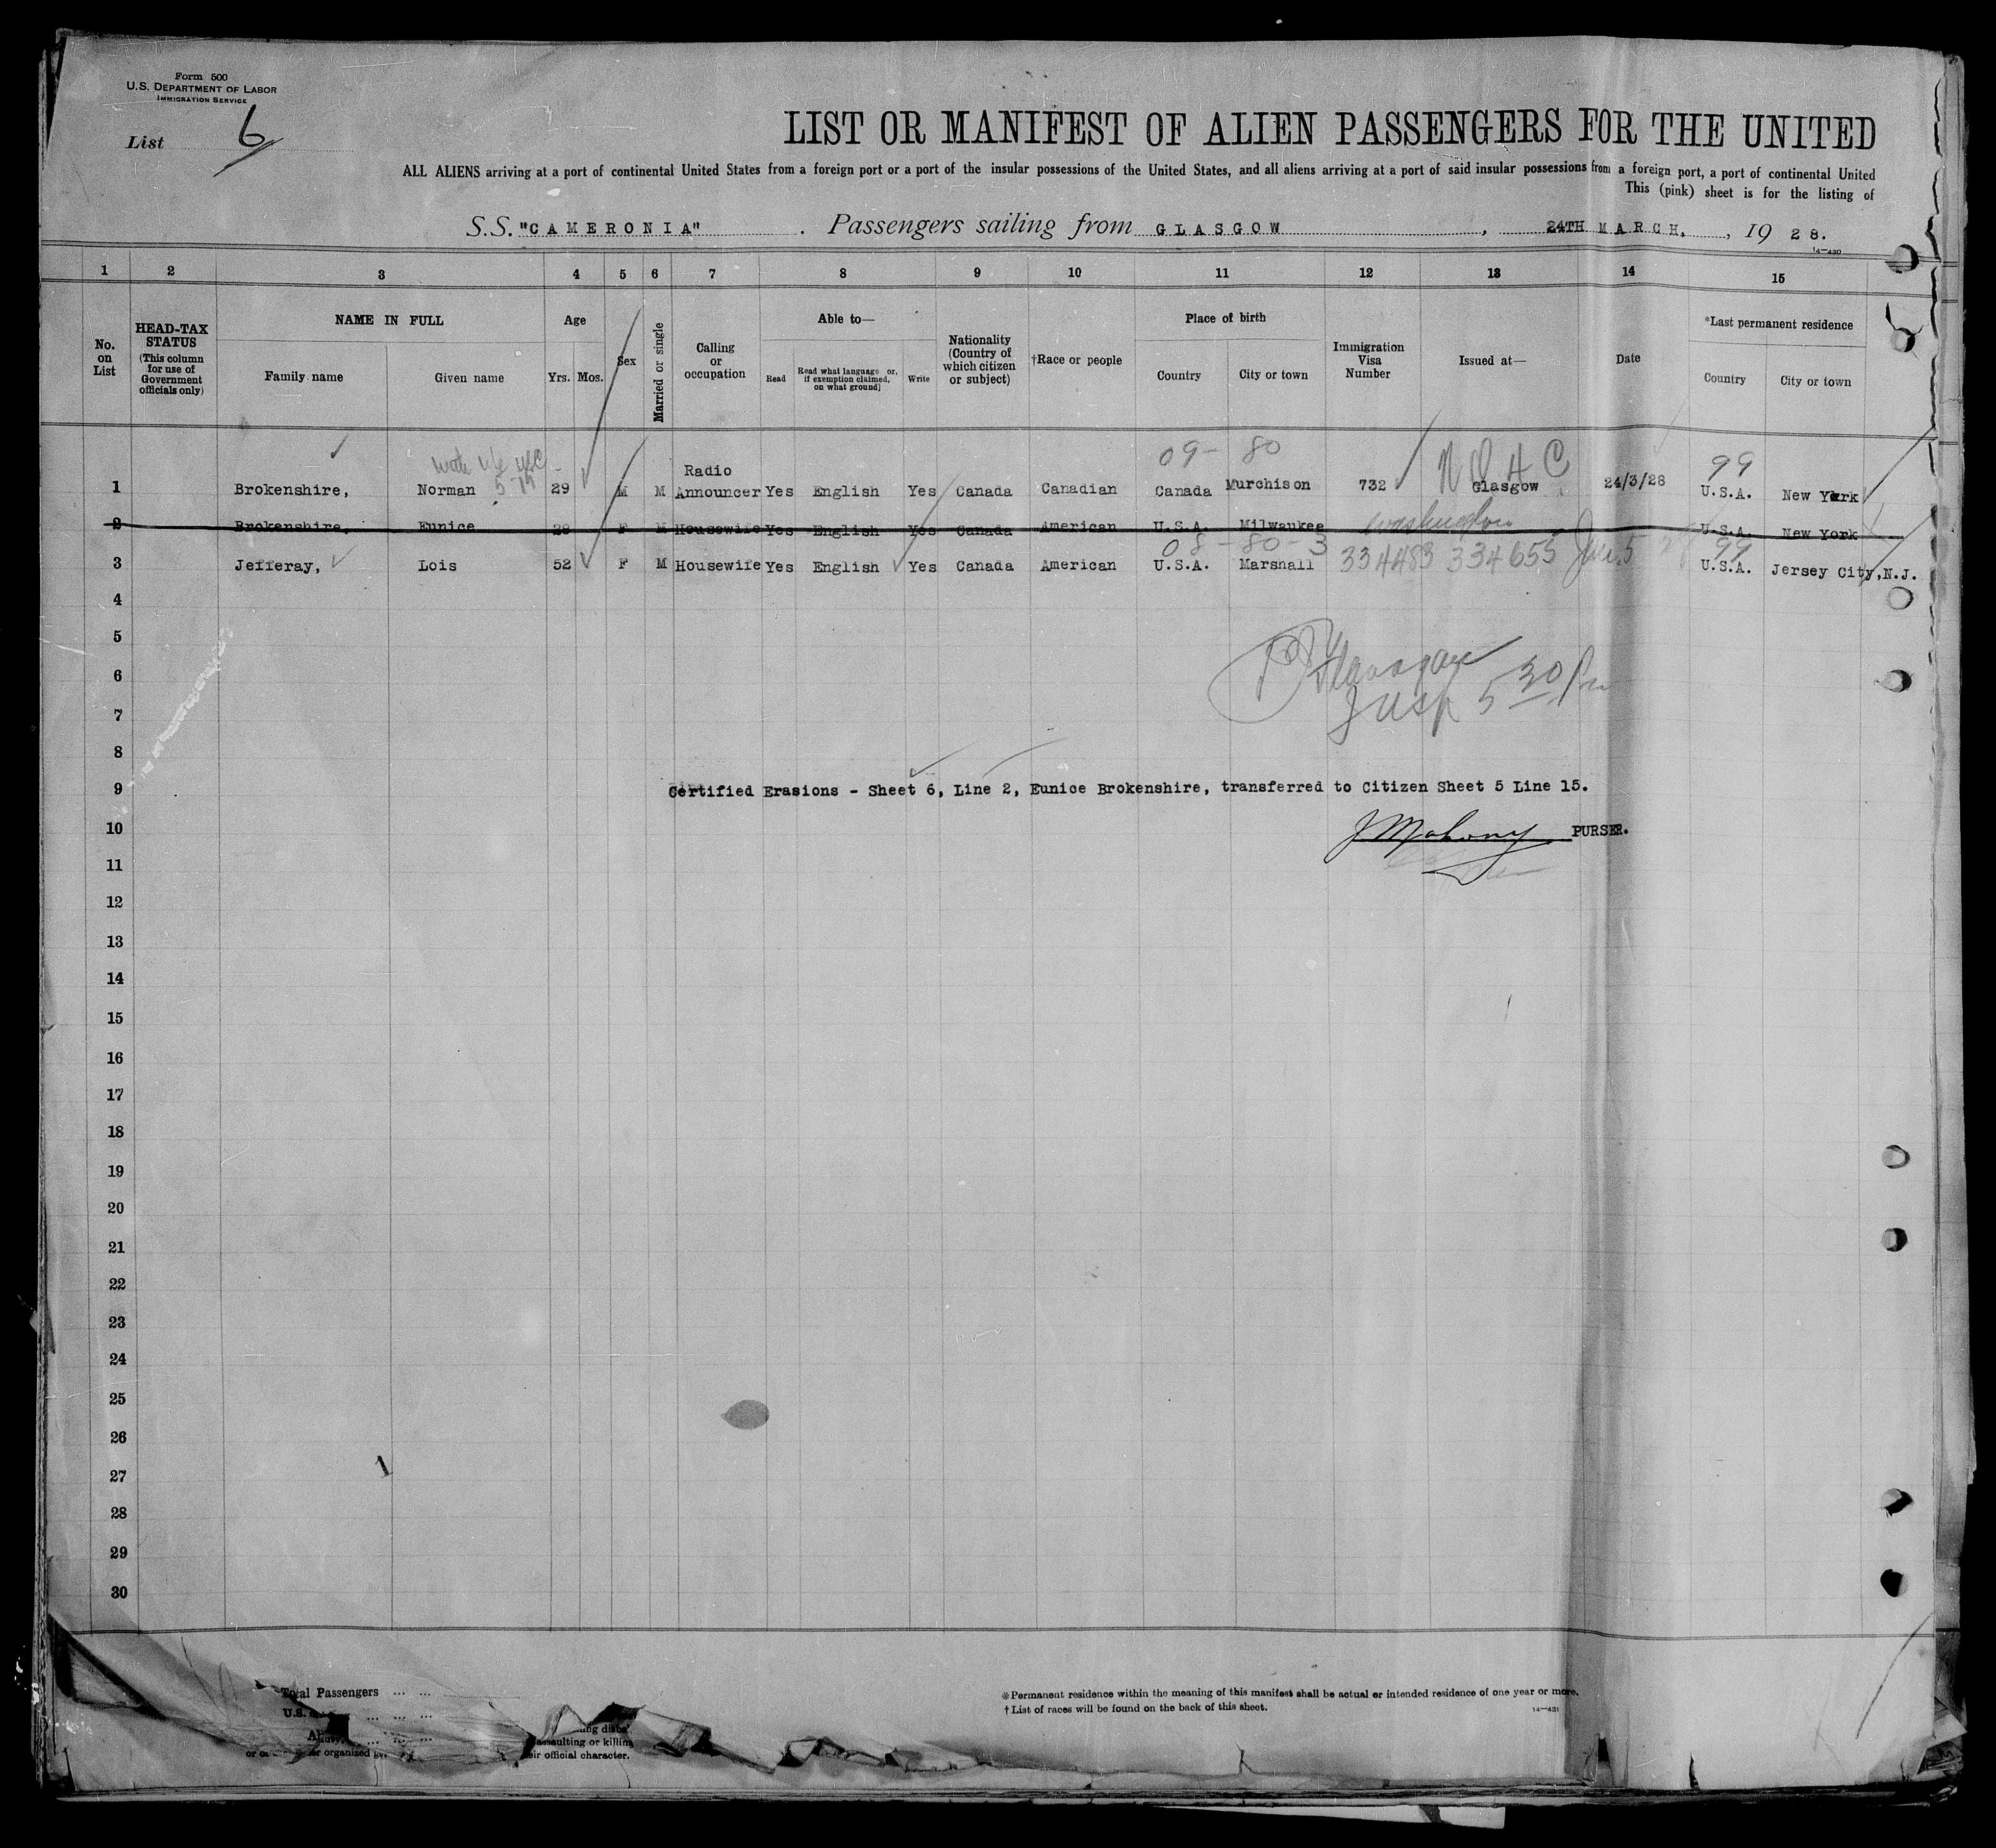 Form 500
U.S. DEPARTMENT OF LABOR
IMMIGRATION SERVICE
List 6
LIST OR MANIFEST OF ALIEN PASSENGERS FOR THE UNITED
ALL ALIENS arriving at a port of continental United States from a foreign port or a port of the insular possessions of the United States, and all aliens arriving at a port of said insular possessions from a foreign port, a port of continental United
This (pink) sheet is for the listing of
S.S. "CAMERONIA" . Passengers sailing from GLASGOW , 24TH MARCH. , 19 28.
14-430
1 2 3 4 5 6 7 8 9 10 11 12 13 14 15
No. on List
HEAD-TAX STATUS (This column for use of Government officials only)
NAME IN FULL
Family name Given name
Age
Yrs. Mos.
Sex
Married or single
Calling or occupation
Able to—
Read Read what language or, if exemption claimed, on what ground] Write
Nationality (Country of which citizen or subject)
†Race or people
Place of birth
Country City or town
Immigration Visa Number
Issued at—
Date
*Last permanent residence
Country City or town
09 - 80 N Q H C 99
1 Brokenshire, Norman 29 M M Radio Announcer Yes English Yes Canada Canadian Canada Murchison 732 Glasgow 24/3/28 U.S.A. New York
2 Brokenshire, Eunice 28 F M Housewife Yes English Yes Canada American U.S.A. Milwaukee Washington U.S.A. New York
08 - 80 - 3 99
3 Jefferay, Lois 52 F M Housewife Yes English Yes Canada American U.S.A. Marshall 334483 334655 U.S.A. Jersey City, N.J.
4
5
6
Insp 5 30 Pm
7
8
9 Certified Erasions - Sheet 6, Line 2, Eunice Brokenshire, transferred to Citizen Sheet 5 Line 15.
10 J Mahony PURSER.
11
12
13
14
15
16
17
18
19
20
21
22
23
24
25
26
27
28
29
30
Total Passengers ... ...
U.S. ... ... ...
*Permanent residence within the meaning of this manifest shall be actual or intended residence of one year or more.
† List of races will be found on the back of this sheet.
14-431
assaulting or killing
official character.
or organized